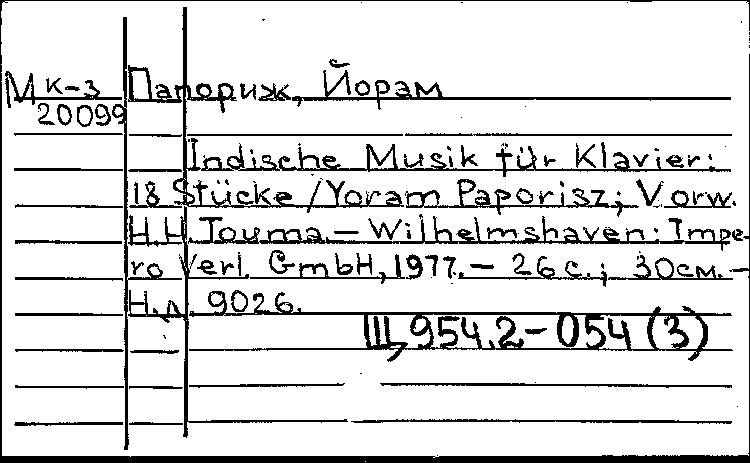 М к-з Папориж, Йорам
20099
Indische Musik für Klavier:
18 Stücke / Yoram Paporisz; Vorw.
H. H. Touma. — Wilhelmshaven: Impe-
ro Verl. GmbH, 1977. — 26 с.; 30 см. —
Н. д. 9026.
Щ 954.2-054 (3)